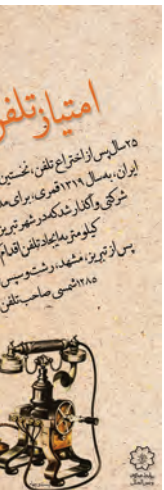 امتیاز تلفن
۲۵ سال پس از اختراع تلفن، نخستین
ایران، به سال ۱۳۱۹ قمری، برای مد
شرکتی واگذار شد که در شهر تبریز
کیلومتر به ایجاد تلفن اقدام
پس از تبریز، مشهد، رشت و سپس
۱۲۸۵ شمسی صاحب تلفن